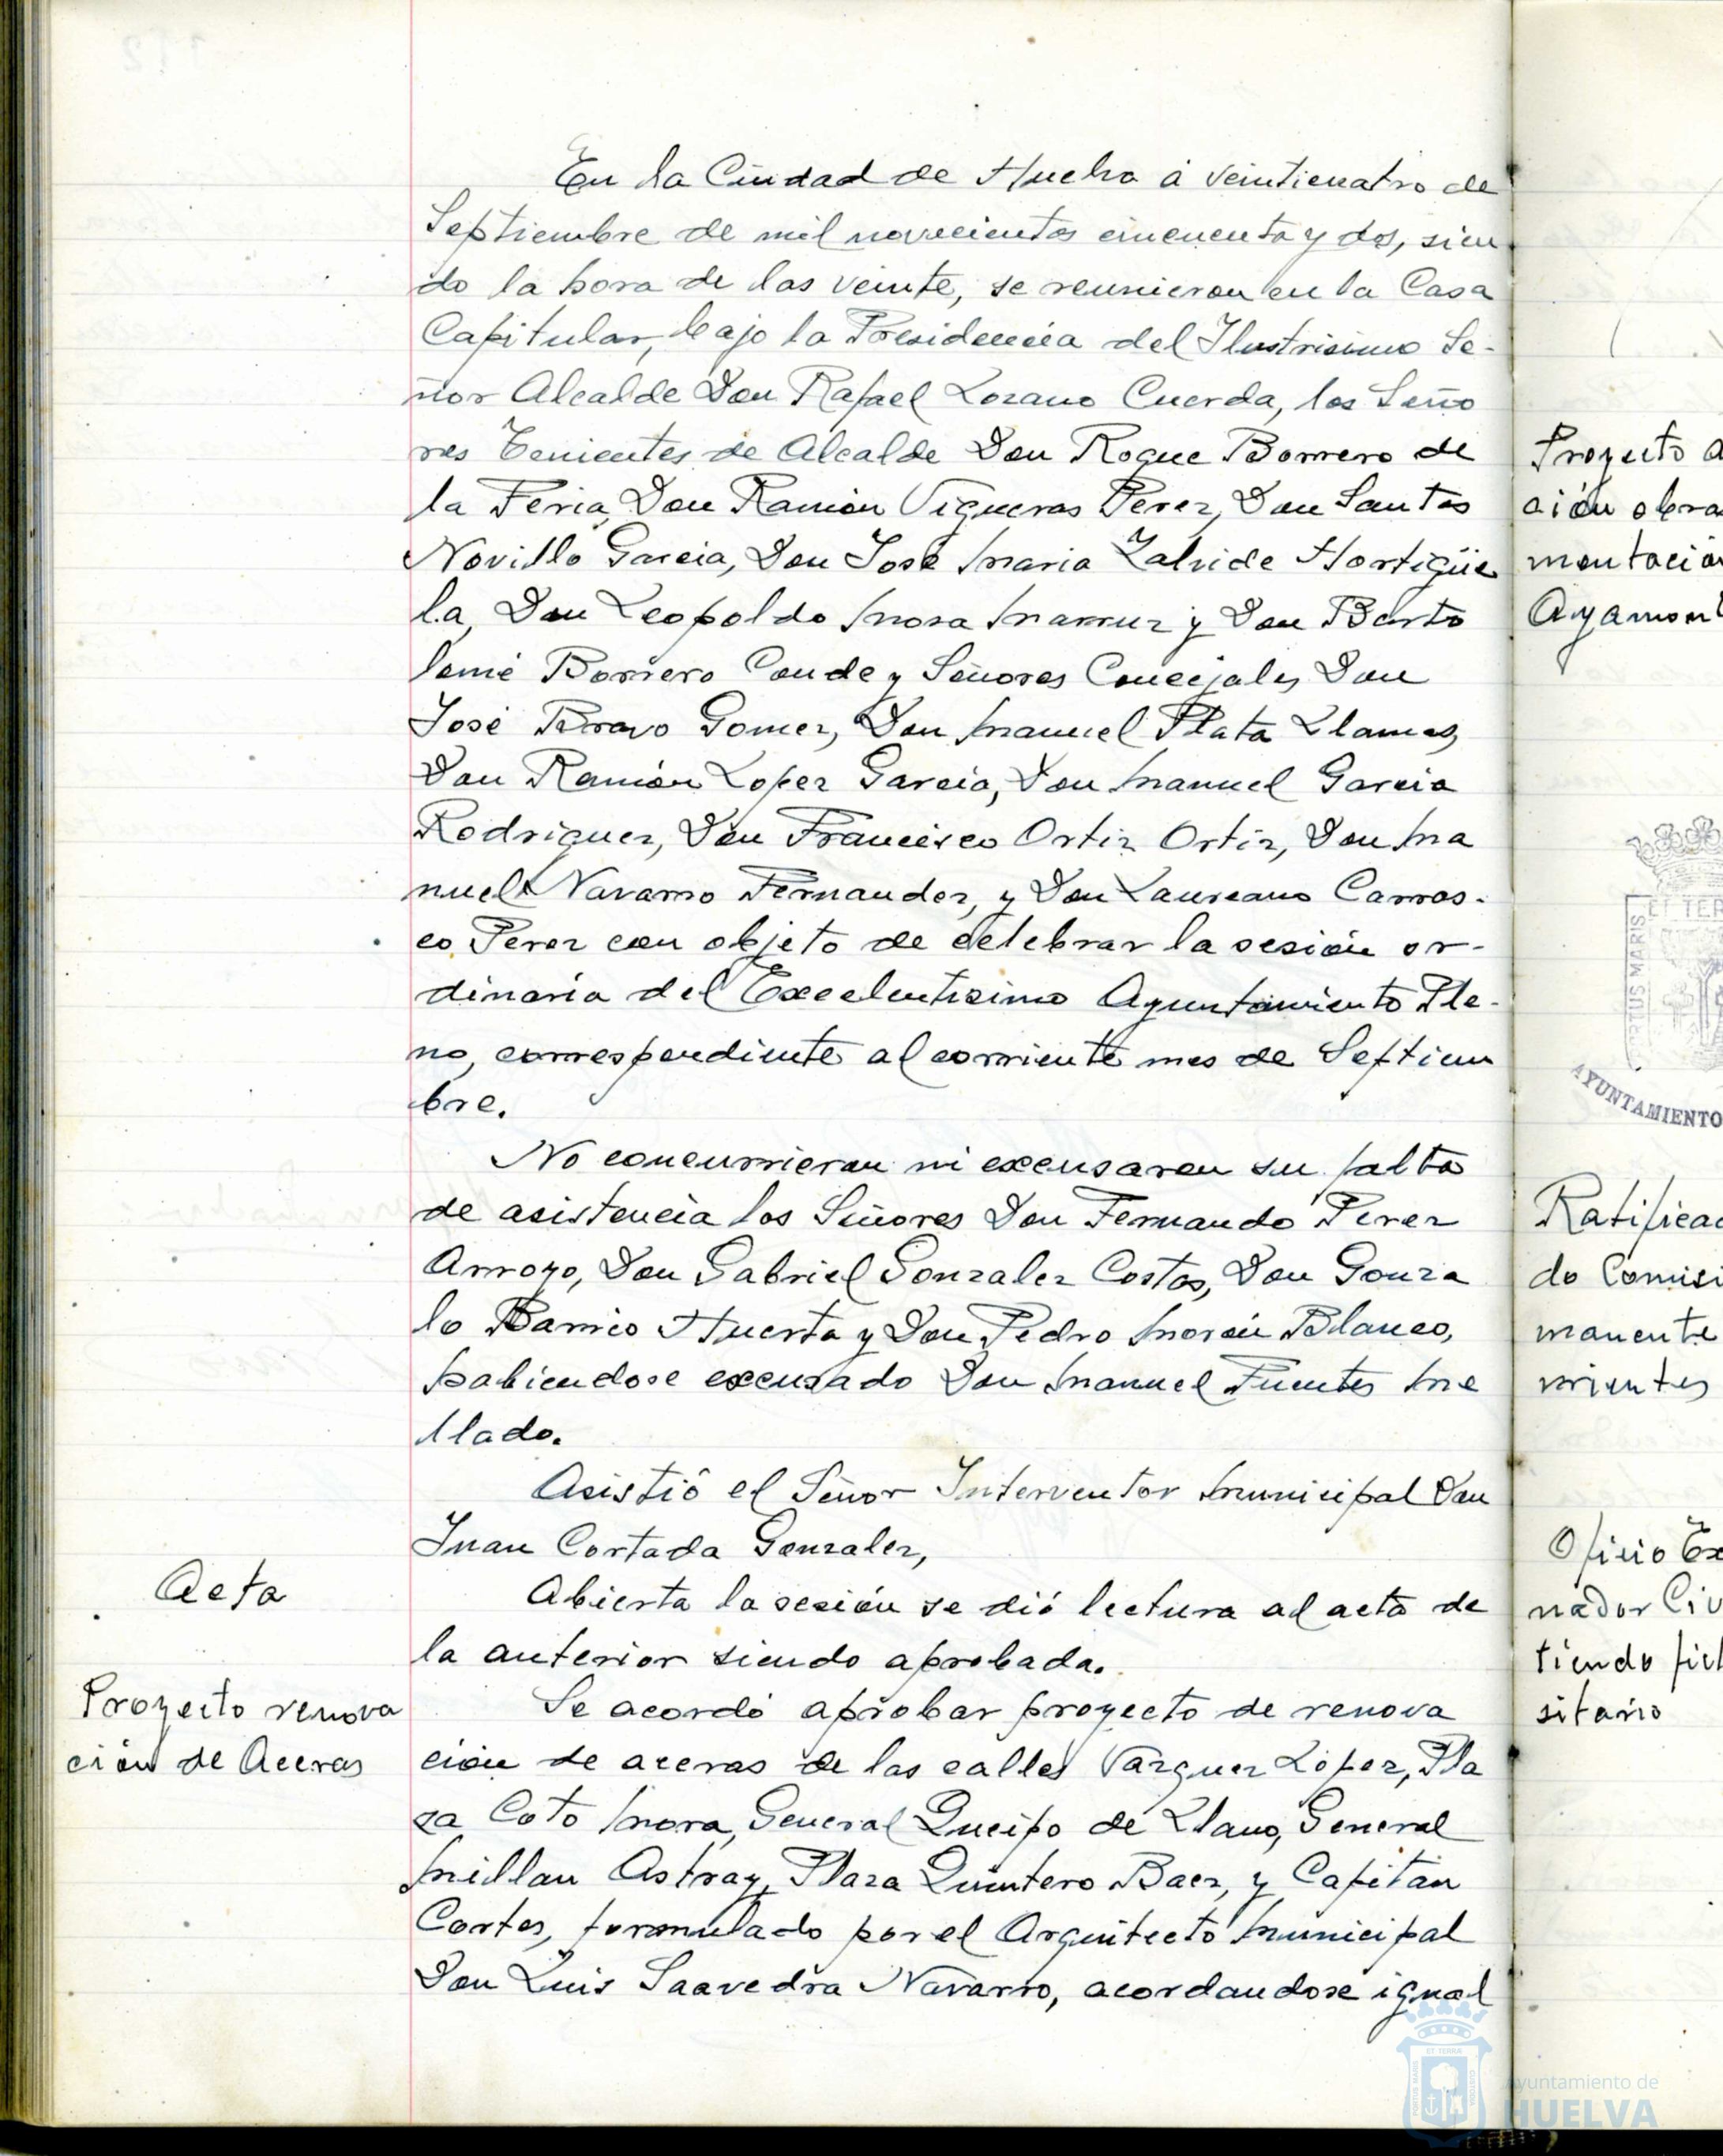 En la Ciudad de Huelva á veinticuatro de
Septiembre de mil novecientos cincuenta y dos, sien
do la hora de las veinte, se reunieron en la Casa
Capitular, bajo la Presidencia del Ilustrisimo Se-
ñor Alcalde Don Rafael Lozano Cuerda, los Seño
res Tenientes de Alcalde Don Roque Borrero de
la Feria, Don Ramón Vigueras Perez, Don Santos
Novillo Garcia, Don José Maria Zalvide Hortigüe
la, Don Leopoldo Mora Marruz y Don Barto
lomé Borrero Conde y Señores Concejales Don
José Bravo Gomez, Don Manuel Plata Llamas,
Don Ramón Lopez Garcia, Don Manuel Garcia
Rodriguez, Don Francisco Ortiz Ortiz, Don Ma
nuel Navarro Fernandez, y Don Laureano Carras-
co Perez con objeto de celebrar la sesión or-
dinaria del Excelentisimo Ayuntamiento Ple-
no, correspondiente al corriente mes de Septiem
bre.
No concurrieron ni excusaron su falta
de asistencia los Señores Don Fernando Perez
Arroyo, Don Gabriel Gonzalez Costas, Don Gonza
lo Barrio Huerta y Don Pedro Morón Blanco,
habiendose excusado Don Manuel Fuentes Me
llado.
Asistió el Señor Interventor Municipal Don
Juan Cortada Gonzalez,
Acta
Abierta la sesión se dió lectura al acta de
la anterior siendo aprobada.
Proyecto renova
ción de Aceras
Se acordó aprobar proyecto de renova
ción de aceras de las calles Vazquez López, Pla
za Coto Mora, General Queipo de Llano, General
Millan Astray, Plaza Quintero Baez, y Capitán
Cortes, formulado por el Arquitecto Municipal
Don Luis Saavedra Navarro, acordandose igual
Proyecto a
ción obra
mentación
Ayamont
ET TER
PORTUS MARIS
AYUNTAMIENTO
Ratificac
do Comisi
manente
rrientes
Oficio Ex
nador Civ
tiendo
sitario
Ayuntamiento de
HUELVA